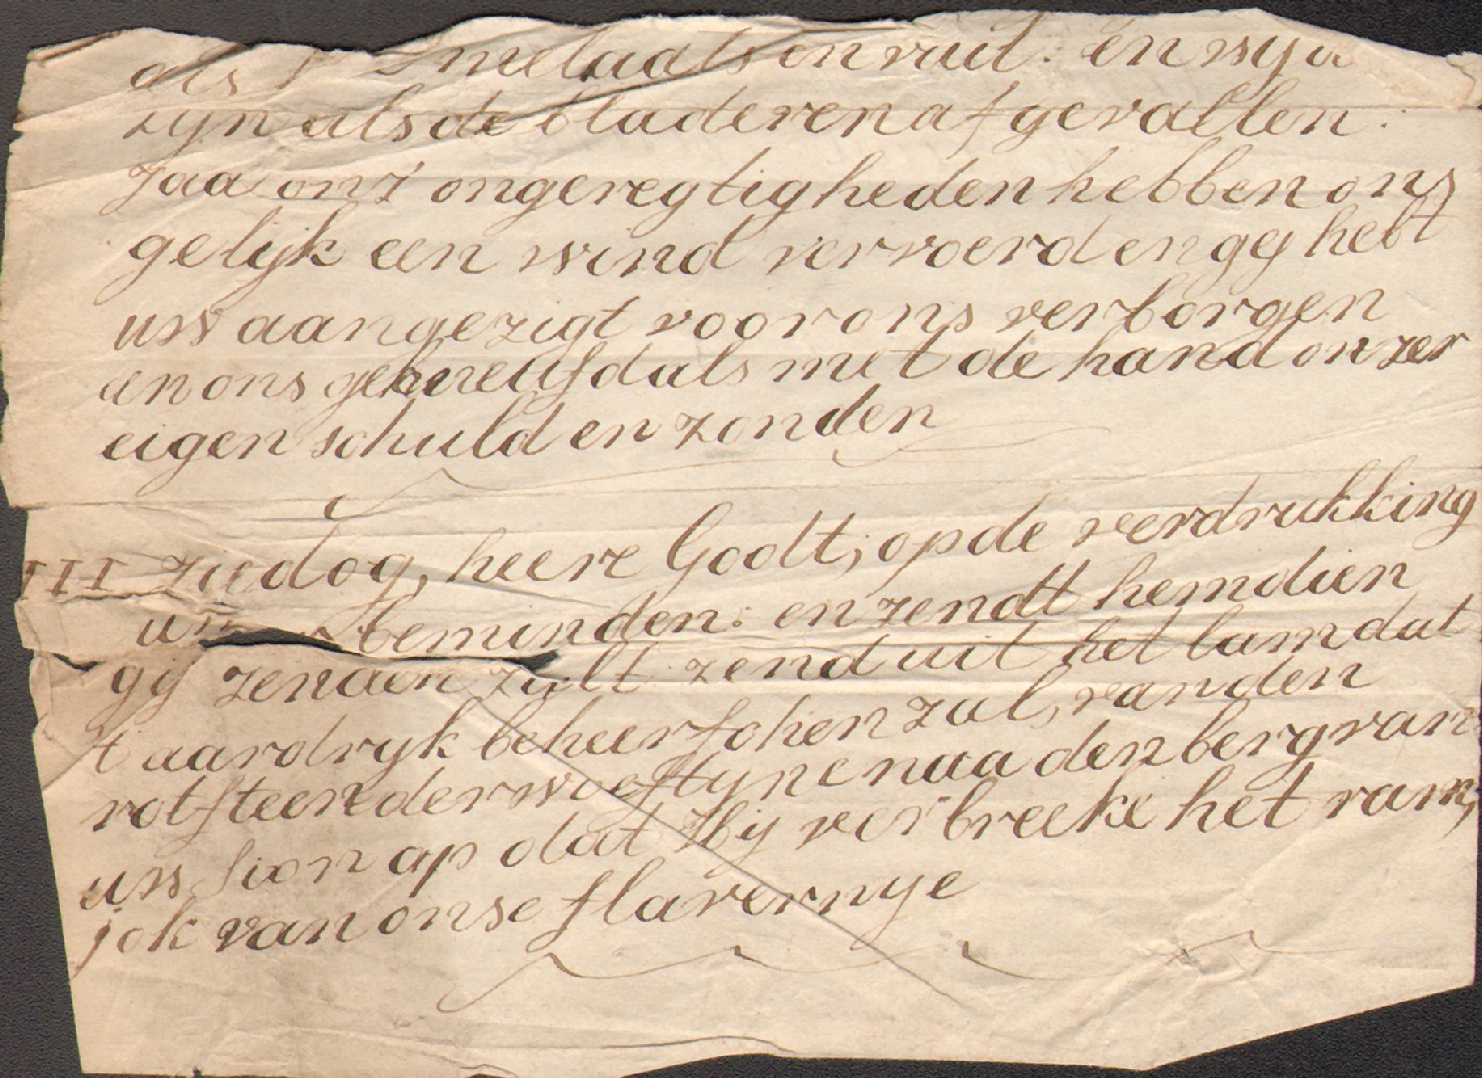 als melaats onruil: en wy a
zyn als de bladeren afgevallen:
Jaa onz' ongeregtigheden hebben ons
gelijk een wind vervoerd en gij hebt
uw aangezigt voor ons verborgen
en ons gekneusd als met de hand onzer
eigen schuld en zonden
III Zie dog, heere Godt, op de verdrukking
uw beminden: en zendt hem dien
gij zenden zult zend uit het lam dat
't aardryk beheerschen zal, van den
rotsteen der woestyne naa den berg van
uw sion op dat Hij verbreeke het ramp
jok van onse slavernye